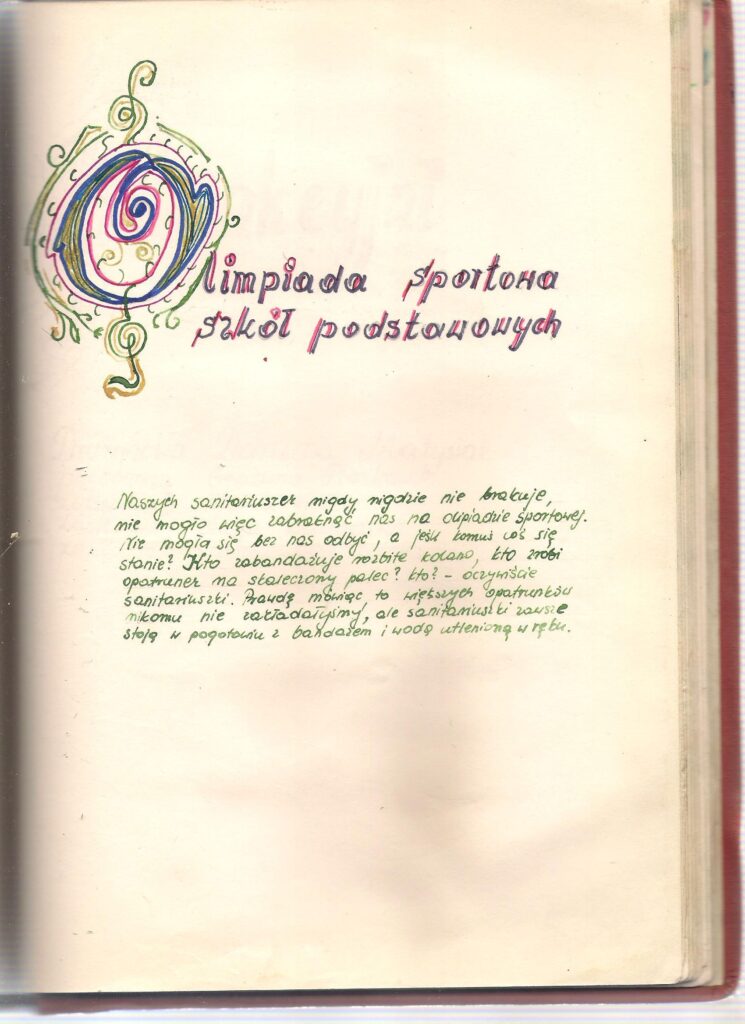 Olimpiada sportowa
szkół podstawowych
Naszych sanitariuszek nigdy nigdzie nie brakuje,
nie mogło więc zabraknąć nas na olipiadzie sportowej.
Nie mogła się bez nas odbyć, a jeśli komuś coś się
stanie? Kto zabandażuje rozbite kolano, kto zrobi
opatrunek na skaleczony palec? kto? - oczywiście
sanitariuszki. Prawdę mówiąc to większych opatrunków
nikomu nie zakładałyśmy, ale sanitariuszki zawsze
stoją w pogotowiu z bandażem i wodą utlenioną w ręku.